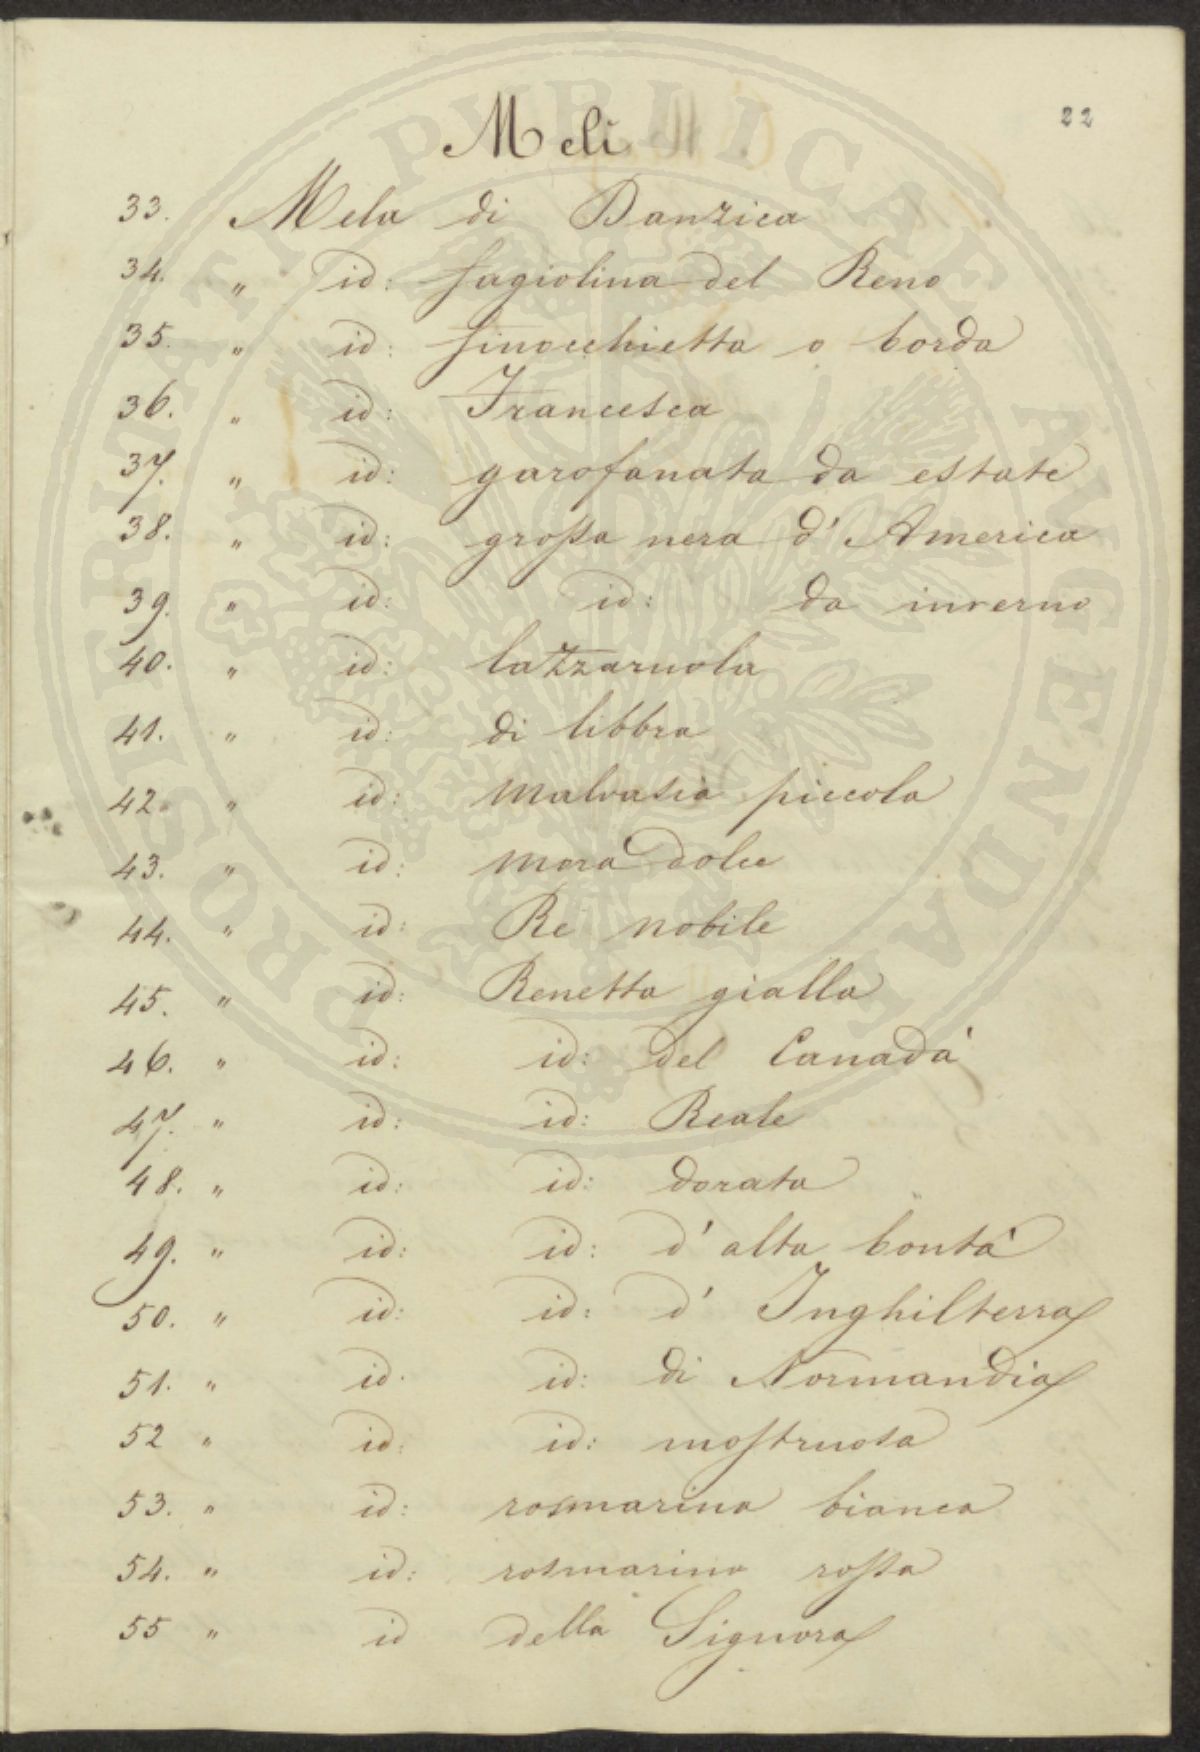 22
Meli
33. Mela di Danzica
34. " id: fagiolina del Reno
35. " id: finocchietta o borda
36. " id: Francesca
37. " id: garofanata da estate
38. " id: grossa nera d'America
39. " id: id: da inverno
40. " id: lazzaruola
41. " id: di libbra
42. " id: malvasia piccola
43. " id: mora dolce
44. " id: Re nobile
45. " id: Renetta gialla
46. " id: id: del Canadà
47. " id: id: Reale
48. " id: id: dorata
49. " id: id: d'alta bontà
50. " id: id: d'Inghilterra
51. " id. id: di Normandia
52 " id: id: mostruosa
53. " id: rosmarina bianca
54. " id: rosmarino rossa
55 " id della Signora
PROSPERITATI PVBLICAE AVGENDAE